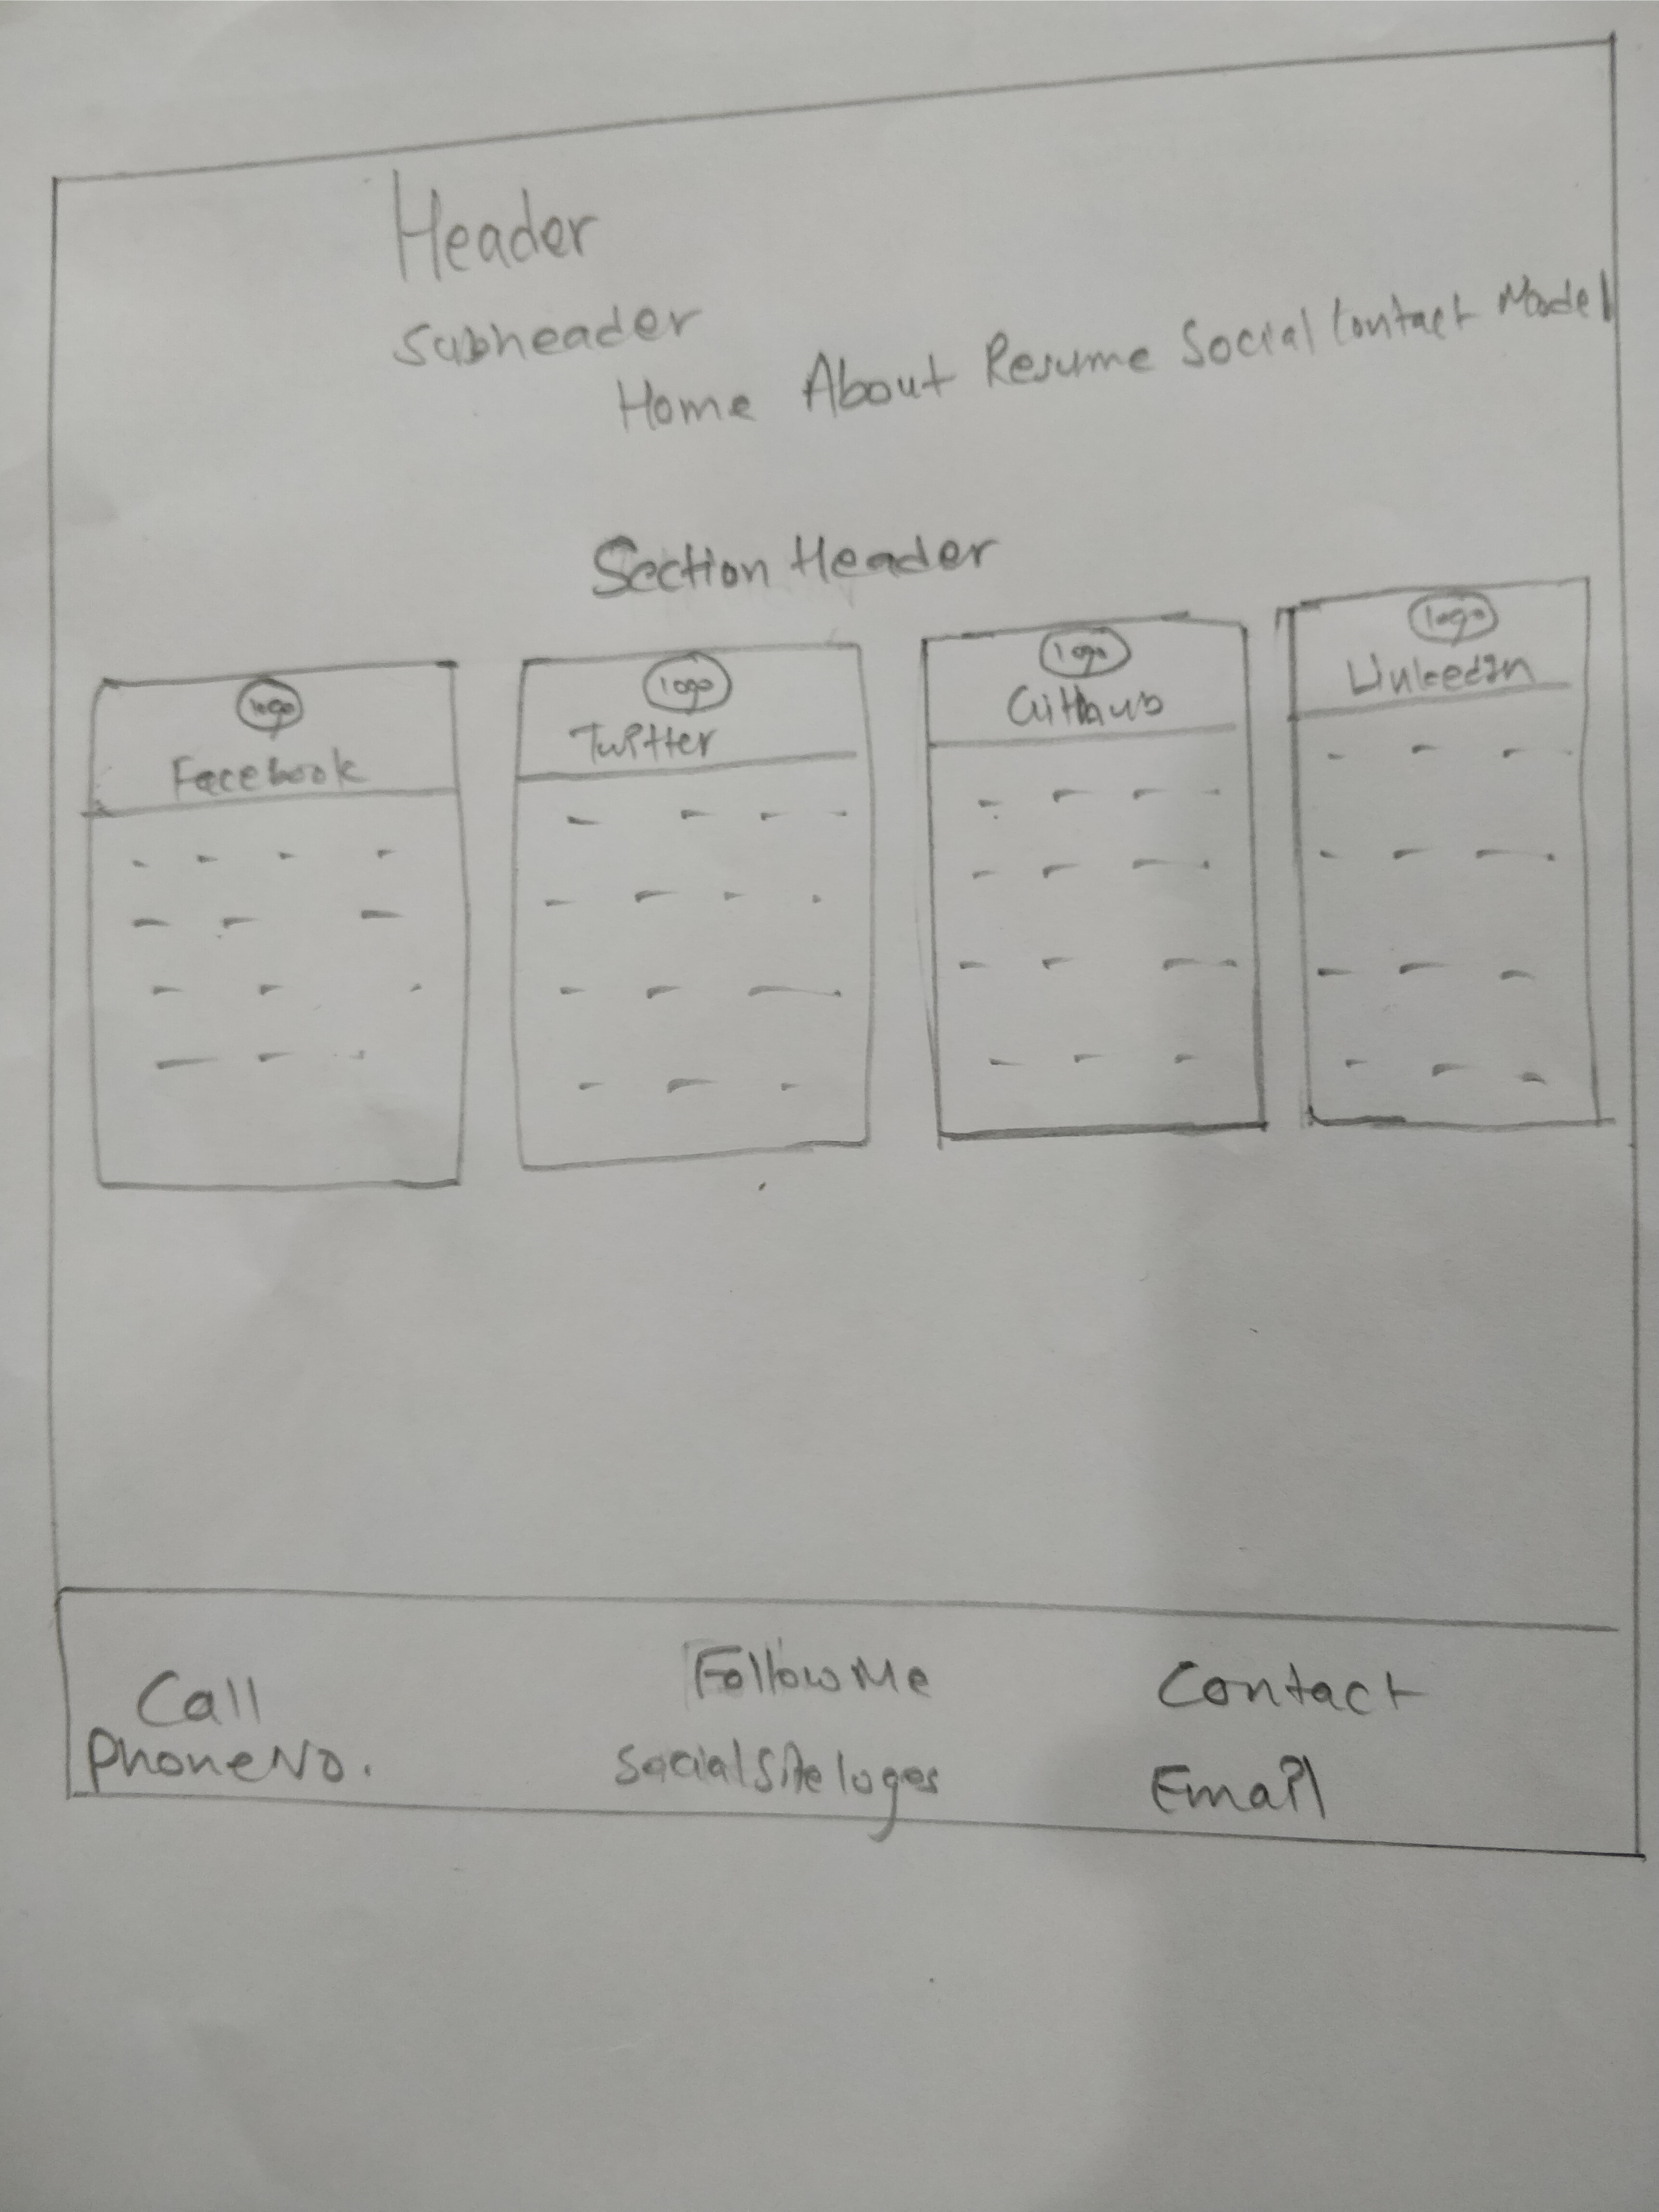 Header
Subheader
Home About Resume Social Contact Model
Section Header
logo
Facebook
logo
Twitter
logo
Github
logo
LinkedIn
Call
PhoneNo.
Follow Me
Social Site loges
Contact
Email